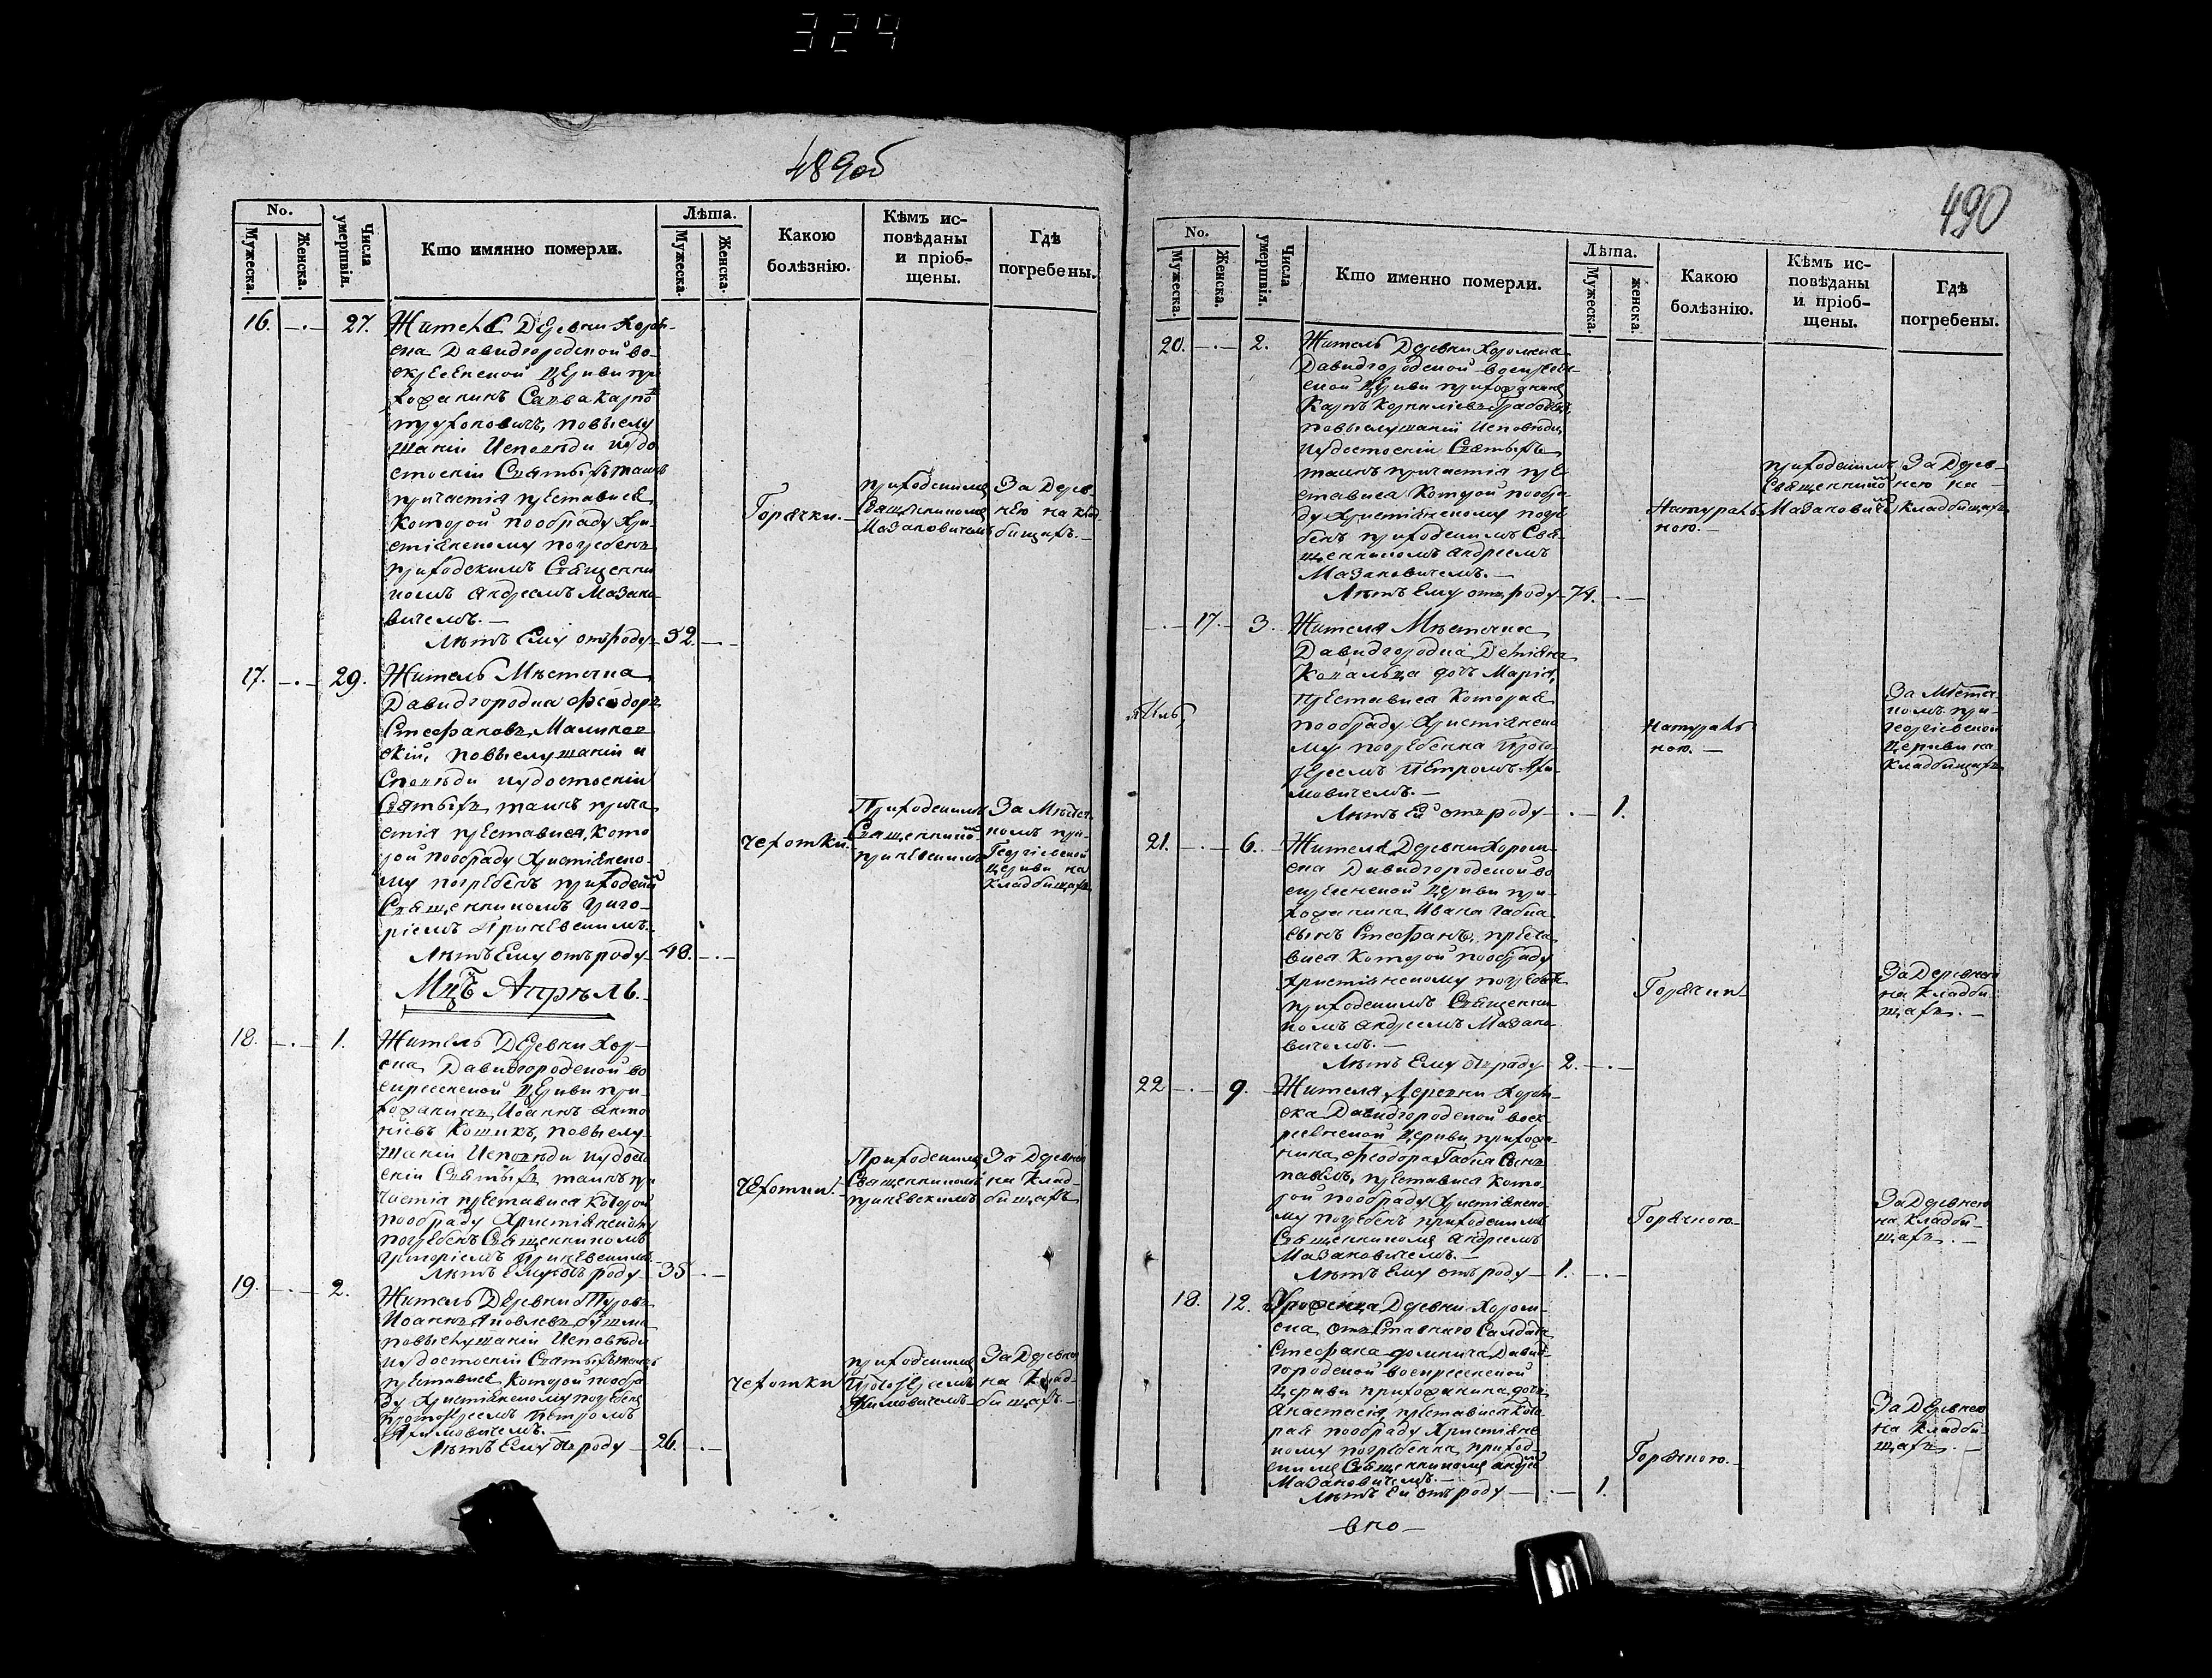 324
489об
No.
Мужеска.
Женска.
Числа умертвія.
Кто имянно померли.
Лѣта.
Мужеска.
Женска.
Какою болѣзнію.
Кѣмъ исповѣданы и пріобщены.
Гдѣ погребены.
16. 27.
Житель Деревни Хором-
ска Давидгородской во-
скресенской Церкви при
хожанинъ Савва Карпо
повыслу
шаніи Исповѣди и удо
стоеніи Святыхъ таинъ
причастія преставися
которой пообряду Хри-
стіянскому погребенъ
приходскимъ Священни
комъ Андреемъ Мазано-
вичемъ.
Лѣтъ Ему отъ роду 52.
Горячки.
приходскимъ
Священникомъ
Мазановичемъ
За Дерев-
нею на клад-
бищахъ.
17. 29.
Житель Мѣстечка
Давидгородка Феодоръ
Стефановъ Малинов
скій, повыслушаніи и
споведи и удостоеніи
Святыхъ таинъ прича
стія преставися, кото
рой пообряду Христіянско-
му погребенъ приходским
Священникомъ Григо-
ріемъ Приневскимъ.
Лѣтъ Ему отъ роду 48.
чехотки.
Приходскимъ
Священником
принѣвскимъ
За Мѣстеч
комъ при-
Георгіевской
Церкви на
Кладбищахъ
Мцъ Апрѣль.
18. 1.
Житель Деревни Хором-
ска Давидгородской во
скресенской Церкви при-
хожанинъ Иоаннъ Анто
ніевъ Кошикъ, повыслу-
шаніи Исповѣди и удосто
еніи Святыхъ таинъ при
частія преставися которой
пообряду Христіянскому
погребенъ Священникомъ
Григоріемъ Принѣвскимъ.
Лѣтъ Ему отъ роду 35
Чехотки.
Приходскимъ
Священникомъ
принѣвскимъ
За Деревнею
на Клад-
бищахъ
19. 2.
Житель Деревни Туровъ
Иоаннъ Яковлевъ Бушма
повыслушаніи Исповѣди
и удостоеніи Святыхъ таинъ
преставися которой пообря
ду Христіянскому погребенъ
Протоіереемъ Петромъ
Акимовичемъ.
Лѣтъ Ему отъ роду 26.
чехотки
приходскимъ
Протоіереемъ
Акимовичемъ
За Деревнею
на Клад-
бищахъ.
490
No.
Мужеска.
Женска.
Числа умертвія.
Кто именно померли.
Лѣта.
Мужеска.
женска.
Какою болѣзнію.
Кѣмъ исповѣданы и пріобщены.
Гдѣ погребены.
20. 2.
Житель Деревни Хоромска
Давидгородской воскресен
ской Церкви прихожанинъ
Карпъ Корниліевъ Грабовецъ
повыслушаніи Исповѣди,
и удостоеніи Святыхъ
таинъ причастія пре
ставися Которой пообря
ду Христіянскому погре
бенъ приходскимъ Свя
щенникомъ Андреемъ
Мазановичемъ.
Лѣтъ Ему отъ роду 74.
Натураль
ною.
приходскимъ
Священником
Мазанович
За Дерев-
нею на
кладбищахъ
17. 3.
Жителя Мѣстечка
Давидгородка Деміяна
Ковальца дочь Марія,
преставися Которая
пообряду Христіянско
му погребенна Прото
іереемъ Петромъ Аки-
мовичемъ.
Лѣтъ Ей отъ роду 1.
Натураль
ною.
За Мѣстеч
комъ при-
Георгіевской
Церкви на
Кладбищахъ
21. 6.
Жителя Деревни Хором-
ска Давидгородской во
скресенской Церкви при-
хожанина Ивана Габца
сынъ Стефанъ, преста
вися Которой пообряду
Христіянскому погребенъ
приходскимъ Священни-
комъ Андреемъ Мазано
вичемъ.
Лѣтъ Ему отъ роду 2.
Горячки
За Деревнею
на Кладби
щахъ.
22 9.
Жителя Деревни Хором-
ска Давидгородской воск
ресѣнской Церкви прихожа-
нина Феодора Габца Сынъ
павелъ, преставися Кото-
рой пообряду Христіянско-
му погребенъ приходскимъ
Священникомъ Андреемъ
Мазановичемъ.
Лѣтъ Ему отъ роду 1.
Горячкою.
За Деревнею
на Кладби-
щахъ.
18. 12.
Уроженца Деревни Хором-
ска, отъ Ставнаго Салдата
Стефана домнича Давид-
городской воскресенской
Церкви прихожанина дочь
Анастасія, преставися Кото-
рая пообряду Христіянс
кому погребенна приход-
скимъ Священникомъ андреем
Мазановичемъ.
Лѣтъ Ей отъ роду 1.
Горячкою.
За Деревнею
На Кладби-
щахъ.